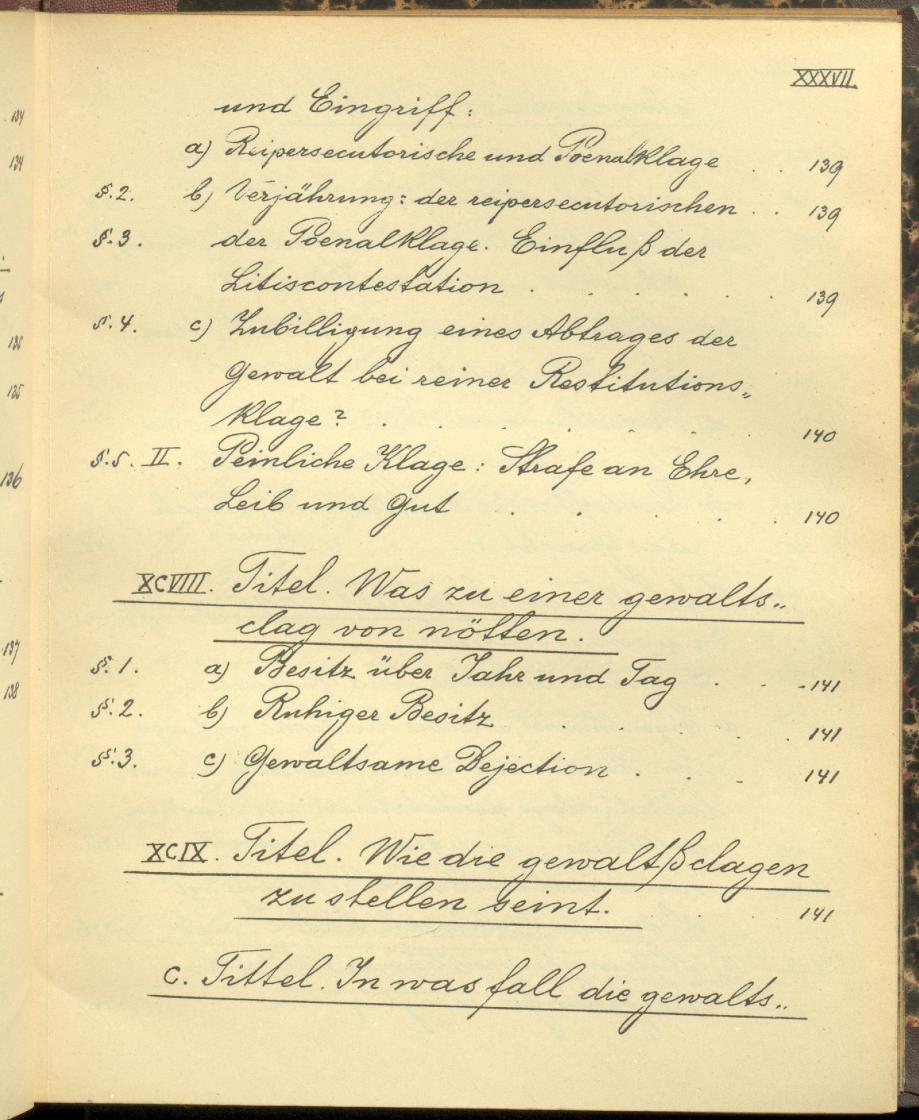 XXXVII.
und Eingriff:
a) Reipersecutorische und Poenalklage . . 139
§.2. b) Verjährung: der reipersecutorischen . . 139
§.3. der Poenalklage. Einfluß der
Litiscontestation . . . . . . 139
§.4. c) Zubilligung eines Abtrages der
Gewalt bei reiner Restitutions„
klage? . . . . . . . 140
§.5. II. Peinliche Klage: Strafe an Ehre,
Leib und Gut . . . . . 140
XCVIII. Titel. Was zu einer gewalts„
clag von nötten.
§.1. a) Besitz über Jahr und Tag . . . 141
§.2. b) Ruhiger Besitz . . . . . 141
§.3. c) Gewaltsame Dejection . . . . 141
XCIX. Titel. Wie die gewaltßclagen
zu stellen seint. . . . . 141
C. Tittel. In was fall die gewalts„
134
134
135
135
136
137
138